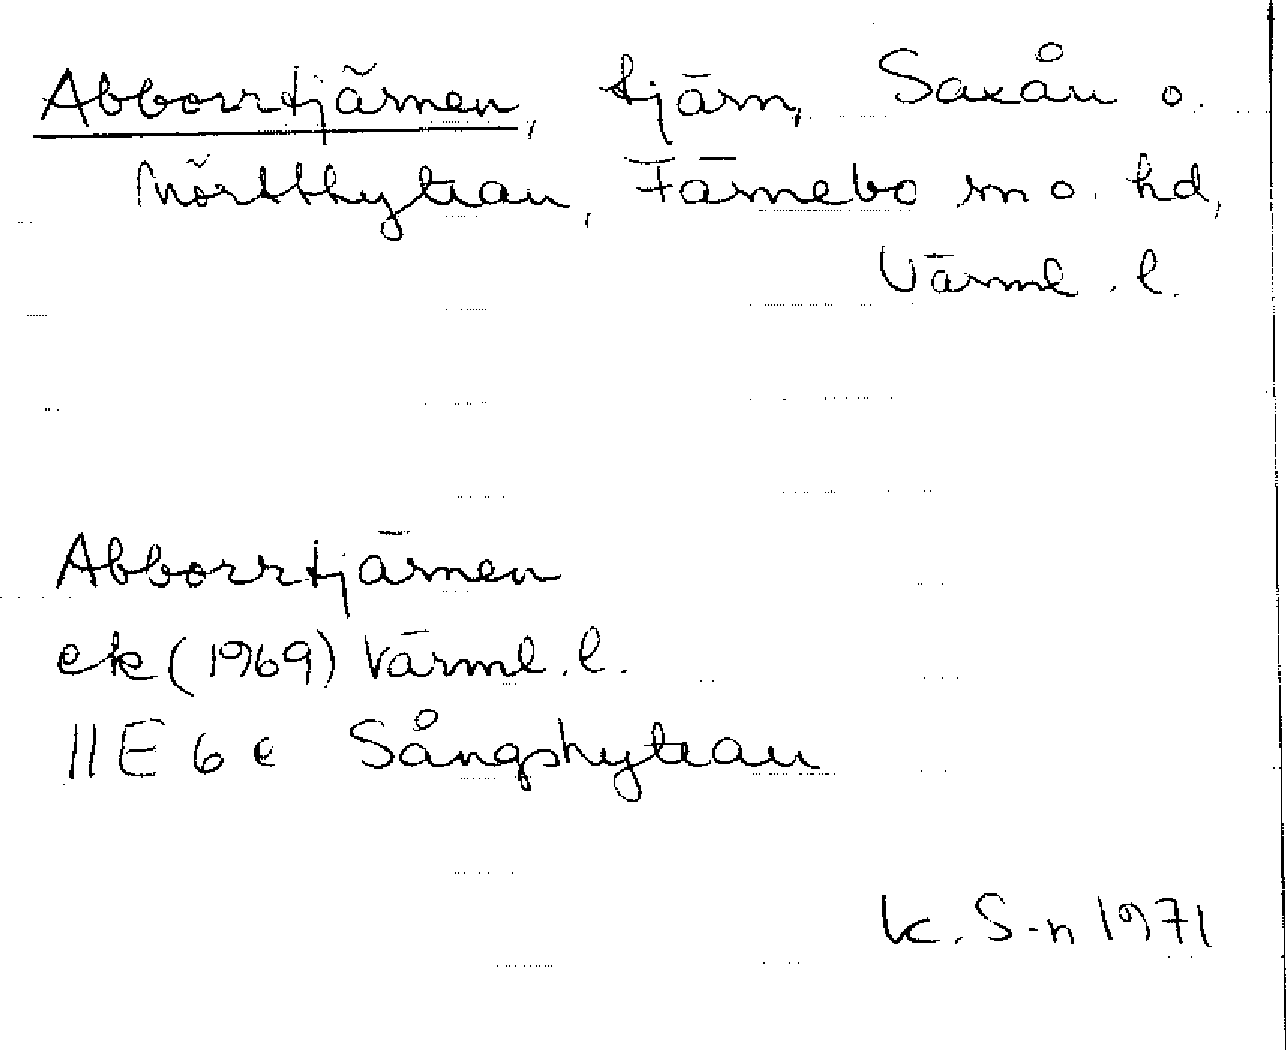 Abborrtjärnen, tjärn, Saxån o.
Mörttbhyttan, Färnebo sn o. hd,
Värml. l.
Abborrtjärnen
ek (1969) Värml. l.
11E 6e Sångshyttan
K. S-n 1971